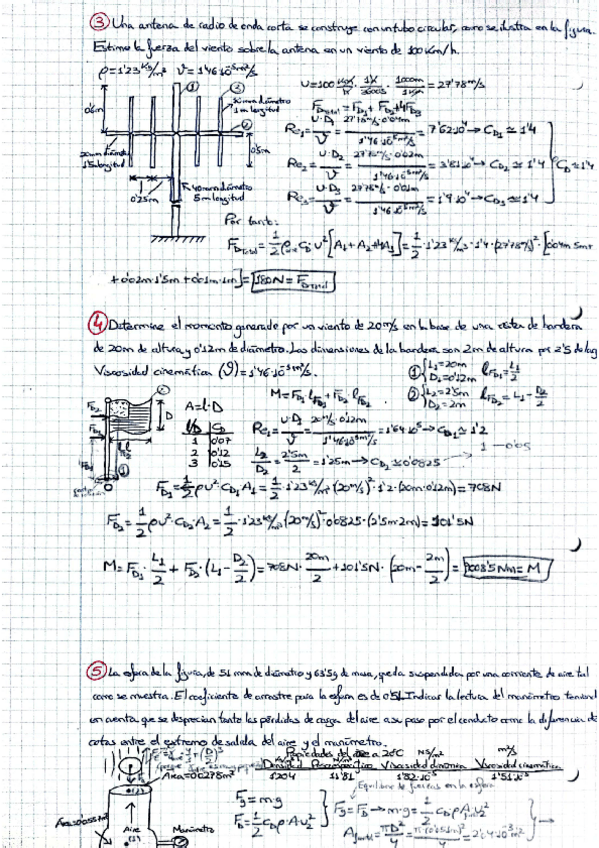 ③ Una antena de radio de onda corta se construye con un tubo circular, como se ilustra en la figura.
Estime la fuerza del viento sobre la antena en un viento de 100 Km/h.
ρ=1'23 kg/m³ ν=1'46·10⁻⁵ m²/s
U=100 Km/h · 1h/3600s · 1000m/1Km = 27'78 m/s
F_DTotal = F_D1 + F_D2 + 4F_D3
Re₁ = U·D₁/ν = 27'78 m/s·0'04m / 1'46·10⁻⁵ m²/s = 7'62·10⁴ → C_D1 ≃ 1'4
Re₂ = U·D₂/ν = 27'78 m/s·0'02m / 1'46·10⁻⁵ m²/s = 3'81·10⁴ → C_D2 ≃ 1'4
Re₃ = U·D₃/ν = 27'78 m/s·0'01m / 1'46·10⁻⁵ m²/s = 1'9·10⁴ → C_D3 ≃ 1'4
C_D ≃ 1'4
①
③
10mm diámetro
1m longitud
②
0'6m
20mm diámetro
1'5m longitud
0'5m
0'25m
40mm diámetro
5m longitud
Por tanto:
F_DTotal = 1/2 ρ C_D U² [A₁+A₂+4A₃] = 1/2 · 1'23 kg/m³ · 1'4 · (27'78 m/s)² · [0'04m·5m+
+0'02m·1'5m+0'01m·1m] = 180N = F_DTotal
④ Determine el momento generado por un viento de 20 m/s en la base de una asta de bandera
de 20m de altura y 0'12m de diámetro. Las dimensiones de la bandera son 2m de altura por 2'5 de
Viscosidad cinemática (ν)=1'46·10⁻⁵ m²/s.
① L₁=20m D₁=0'12m l_FD1 = L₁/2
② L₂=2'5m D₂=2m l_FD2 = L₁ - D₂/2
M = F_D1·l_FD1 + F_D2·l_FD2
A=l·D
l/D C_D
1 0'07
2 0'12
3 0'15
Re₁ = U·D₁/ν = 20 m/s·0'12m / 1'46·10⁻⁵ m²/s = 1'64·10⁵ → C_D1 ≃ 1'2
L₂/D₂ = 2'5m/2m = 1'25m → C_D2 ≃ 0'0825
F_D1 = 1/2 ρU²·C_D1·A₁ = 1/2 · 1'23 kg/m³ (20 m/s)² · 1'2 · (20m·0'12m) = 708N
F_D2 = 1/2 ρU²·C_D2·A₂ = 1/2 · 1'23 kg/m³ (20 m/s)² · 0'0825 · (2'5m·2m) = 101'5N
M = F_D1 · L₁/2 + F_D2 · (L₁ - D₂/2) = 708N · 20m/2 + 101'5N · (20m - 2m/2) = 9008'5Nm = M
⑤ La esfera de la figura, de 51 mm de diámetro y 63'5g de masa, queda suspendida por una corriente de aire tal
como se muestra. El coeficiente de arrastre para la esfera es de 0'51. Indicar la lectura del manómetro teniendo
en cuenta que se desprecian tanto las pérdidas de carga del aire a su paso por el conducto como la diferencia de
cotas entre el extremo de salida del aire y el manómetro.
Propiedades del aire a 20ºC
Densidad Peso específico Viscosidad dinámica Viscosidad cinemática
1'204 11'81 1'82·10⁻⁵ 1'51·10⁻⁵
Área=0'00278m²
Equilibrio de fuerzas en la esfera
F_g = m·g
F_D = 1/2 C_D·ρ·A·U₂²
F_g = F_D → m·g = 1/2 C_D ρ A U₂²
A = πD²/4
Aire
Manómetro